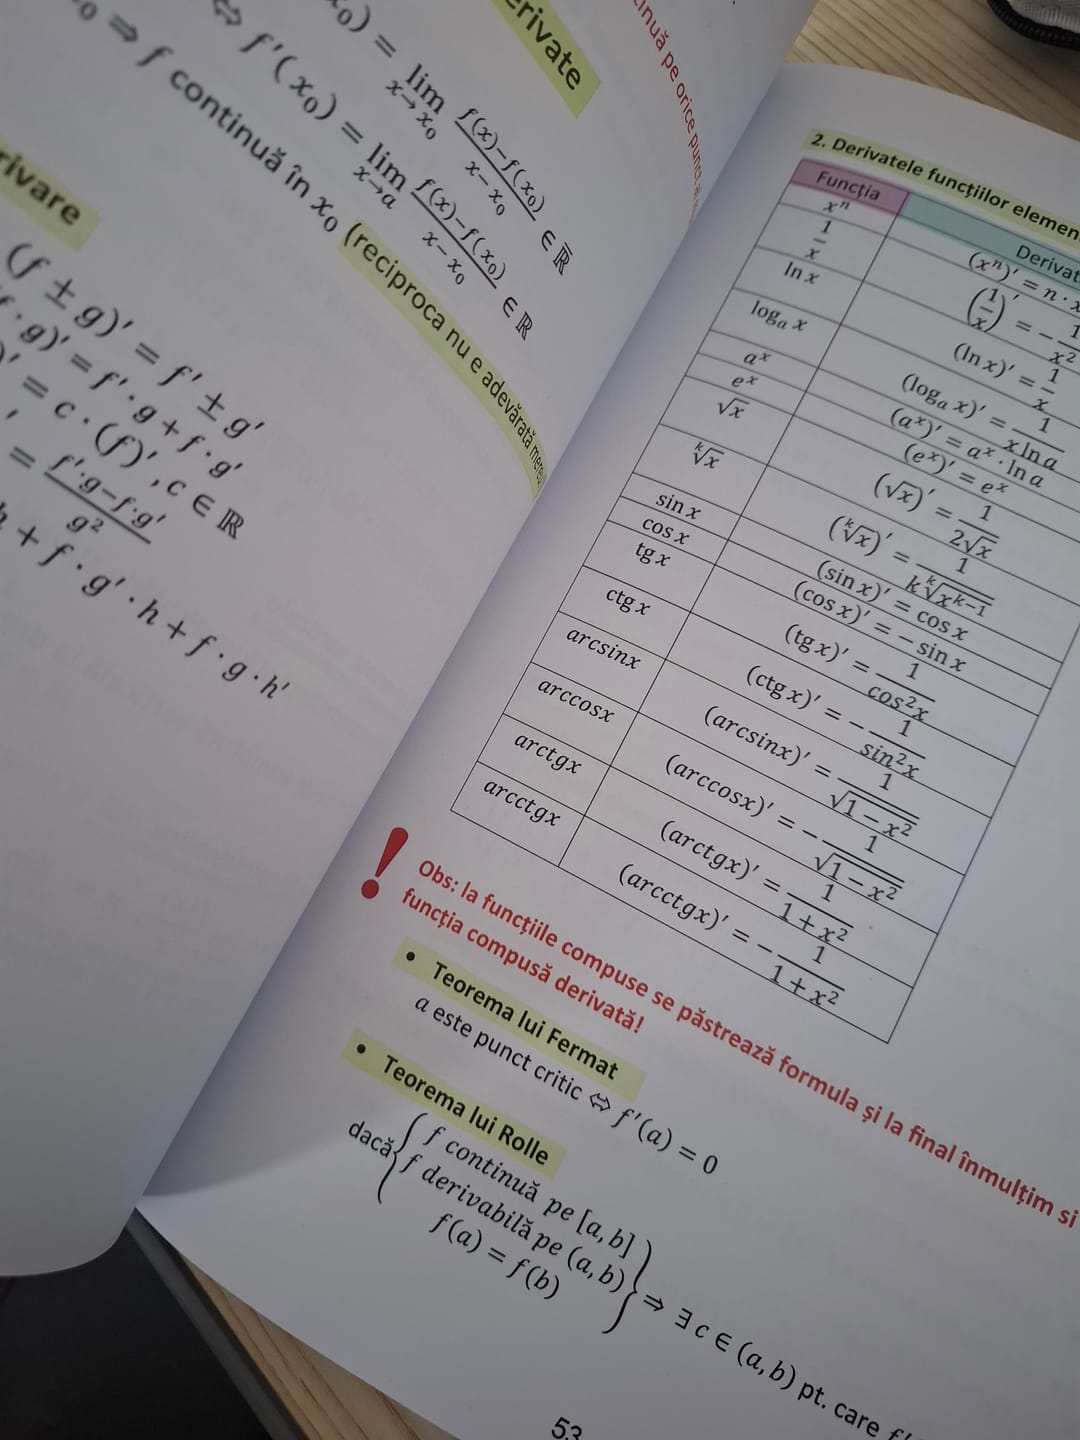 erivate
x₀) = lim x→x₀ (f(x)−f(x₀))/(x−x₀) ∈ ℝ̄
⇔ f′(x₀) = lim x→a (f(x)−f(x₀))/(x−x₀) ∈ ℝ
⇒ f continuă în x₀ (reciproca nu e adevărată
rivare
(f ± g)′ = f′ ± g′
f · g)′ = f′ · g + f · g′
)′ = c · (f)′, c ∈ ℝ
′ = (f′·g−f·g′)/g²
h + f · g′ · h + f · g · h′
tinuă pe orice punct
2. Derivatele funcțiilor elemen
Funcția Derivat
xⁿ (xⁿ)′ = n · x
1/x (1/x)′ = −1/x²
ln x (ln x)′ = 1/x
logₐ x (logₐ x)′ = 1/(x ln a)
aˣ (aˣ)′ = aˣ · ln a
eˣ (eˣ)′ = eˣ
√x (√x)′ = 1/(2√x)
ᵏ√x (ᵏ√x)′ = 1/(k ᵏ√(xᵏ⁻¹))
sin x (sin x)′ = cos x
cos x (cos x)′ = − sin x
tg x (tg x)′ = 1/cos²x
ctg x (ctg x)′ = −1/sin²x
arcsinx (arcsinx)′ = 1/√(1−x²)
arccosx (arccosx)′ = −1/√(1−x²)
arctgx (arctgx)′ = 1/(1+x²)
arcctgx (arcctgx)′ = −1/(1+x²)
! Obs: la funcțiile compuse se păstrează formula și la final înmulțim si
funcția compusă derivată!
• Teorema lui Fermat
a este punct critic ⇔ f′(a) = 0
• Teorema lui Rolle
dacă { f continuă pe [a, b]
f derivabilă pe (a, b)
f(a) = f(b) } ⇒ ∃ c ∈ (a, b) pt. care f′
53